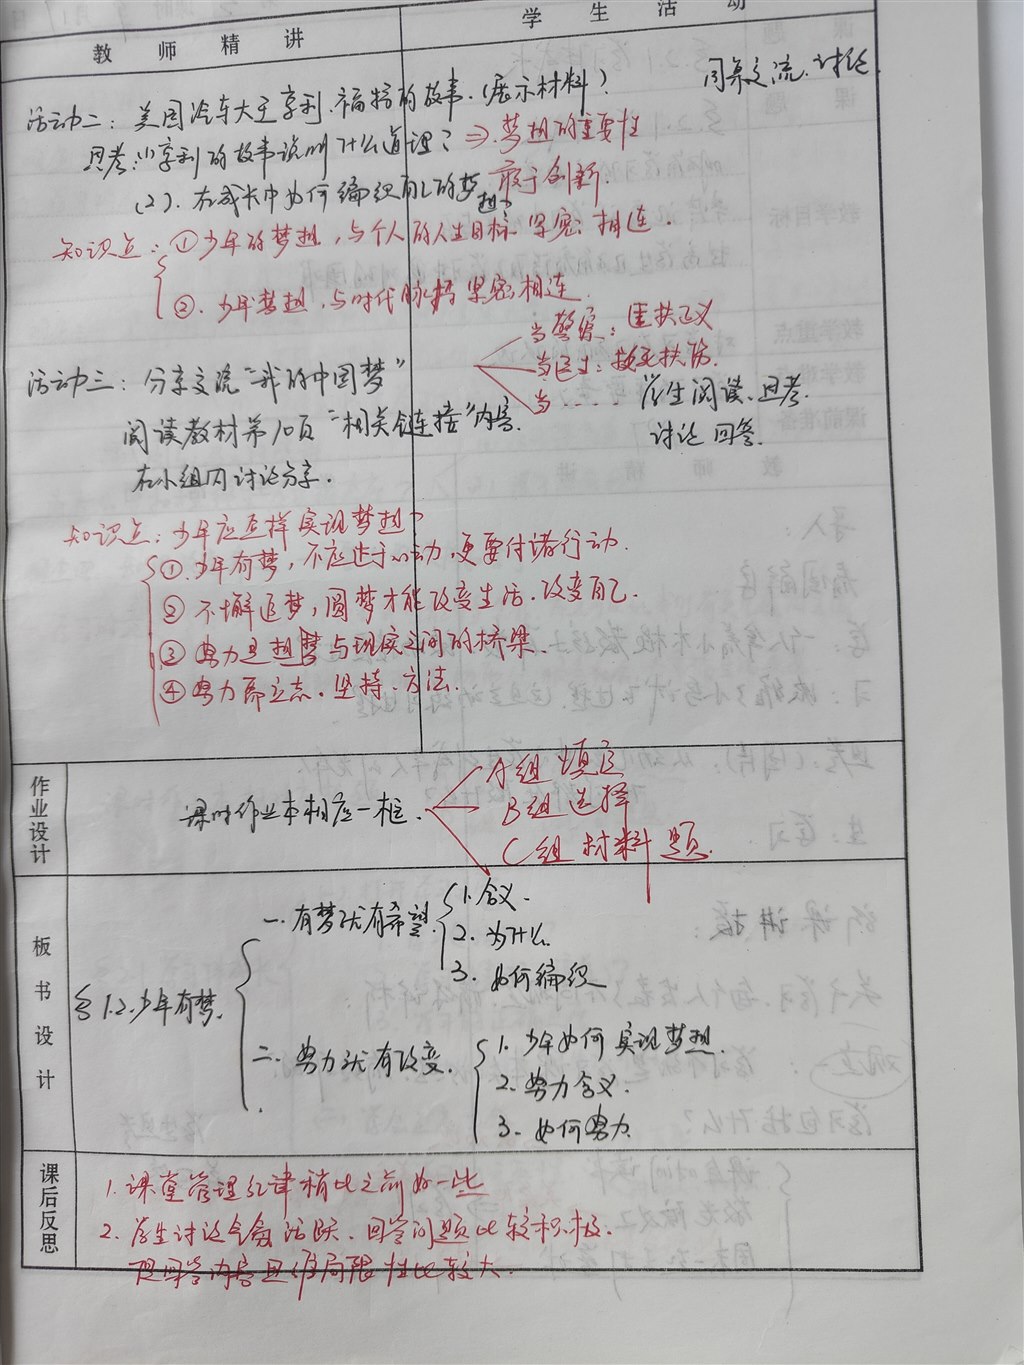 教师精讲
学生活动
同桌交流.讨论.
活动二：美国汽车大王亨利.福特的故事.(展示材料)
思考:(1)亨利的故事说明什么道理？⇒梦想的重要性
敢于创新.
(2).在成长中如何编织自己的梦想？
知识点：①少年的梦想，与个人的人生目标紧密相连.
②.少年梦想,与时代脉搏紧密相连.
当警察：匡扶正义
当医生：救死扶伤.
当.....
活动三：分享交流"我的中国梦"
阅读教材第10页"相关链接"内容.
在小组内讨论分享.
学生阅读、思考.
讨论 回答.
知识点：少年应怎样实现梦想？
①.少年有梦，不应止于心动,更要付诸行动.
② 不懈追梦，圆梦才能改变生活.改变自己.
③ 努力是想梦与现实之间的桥梁.
④ 努力需立志.坚持.方法.
作业设计
课时作业本相应一框.
A组 填空
B组 选择
C组 材料题.
板书设计
§1.2.少年有梦.
一.有梦就有希望.
1.含义.
2.为什么
3.如何编织
二.努力就有改变.
1.少年如何实现梦想.
2.努力含义.
3.如何努力
课后反思
1.课堂管理纪律稍比之前好一些
2.学生讨论气氛活跃.回答问题比较积极.
但回答内容思维局限性比较大.